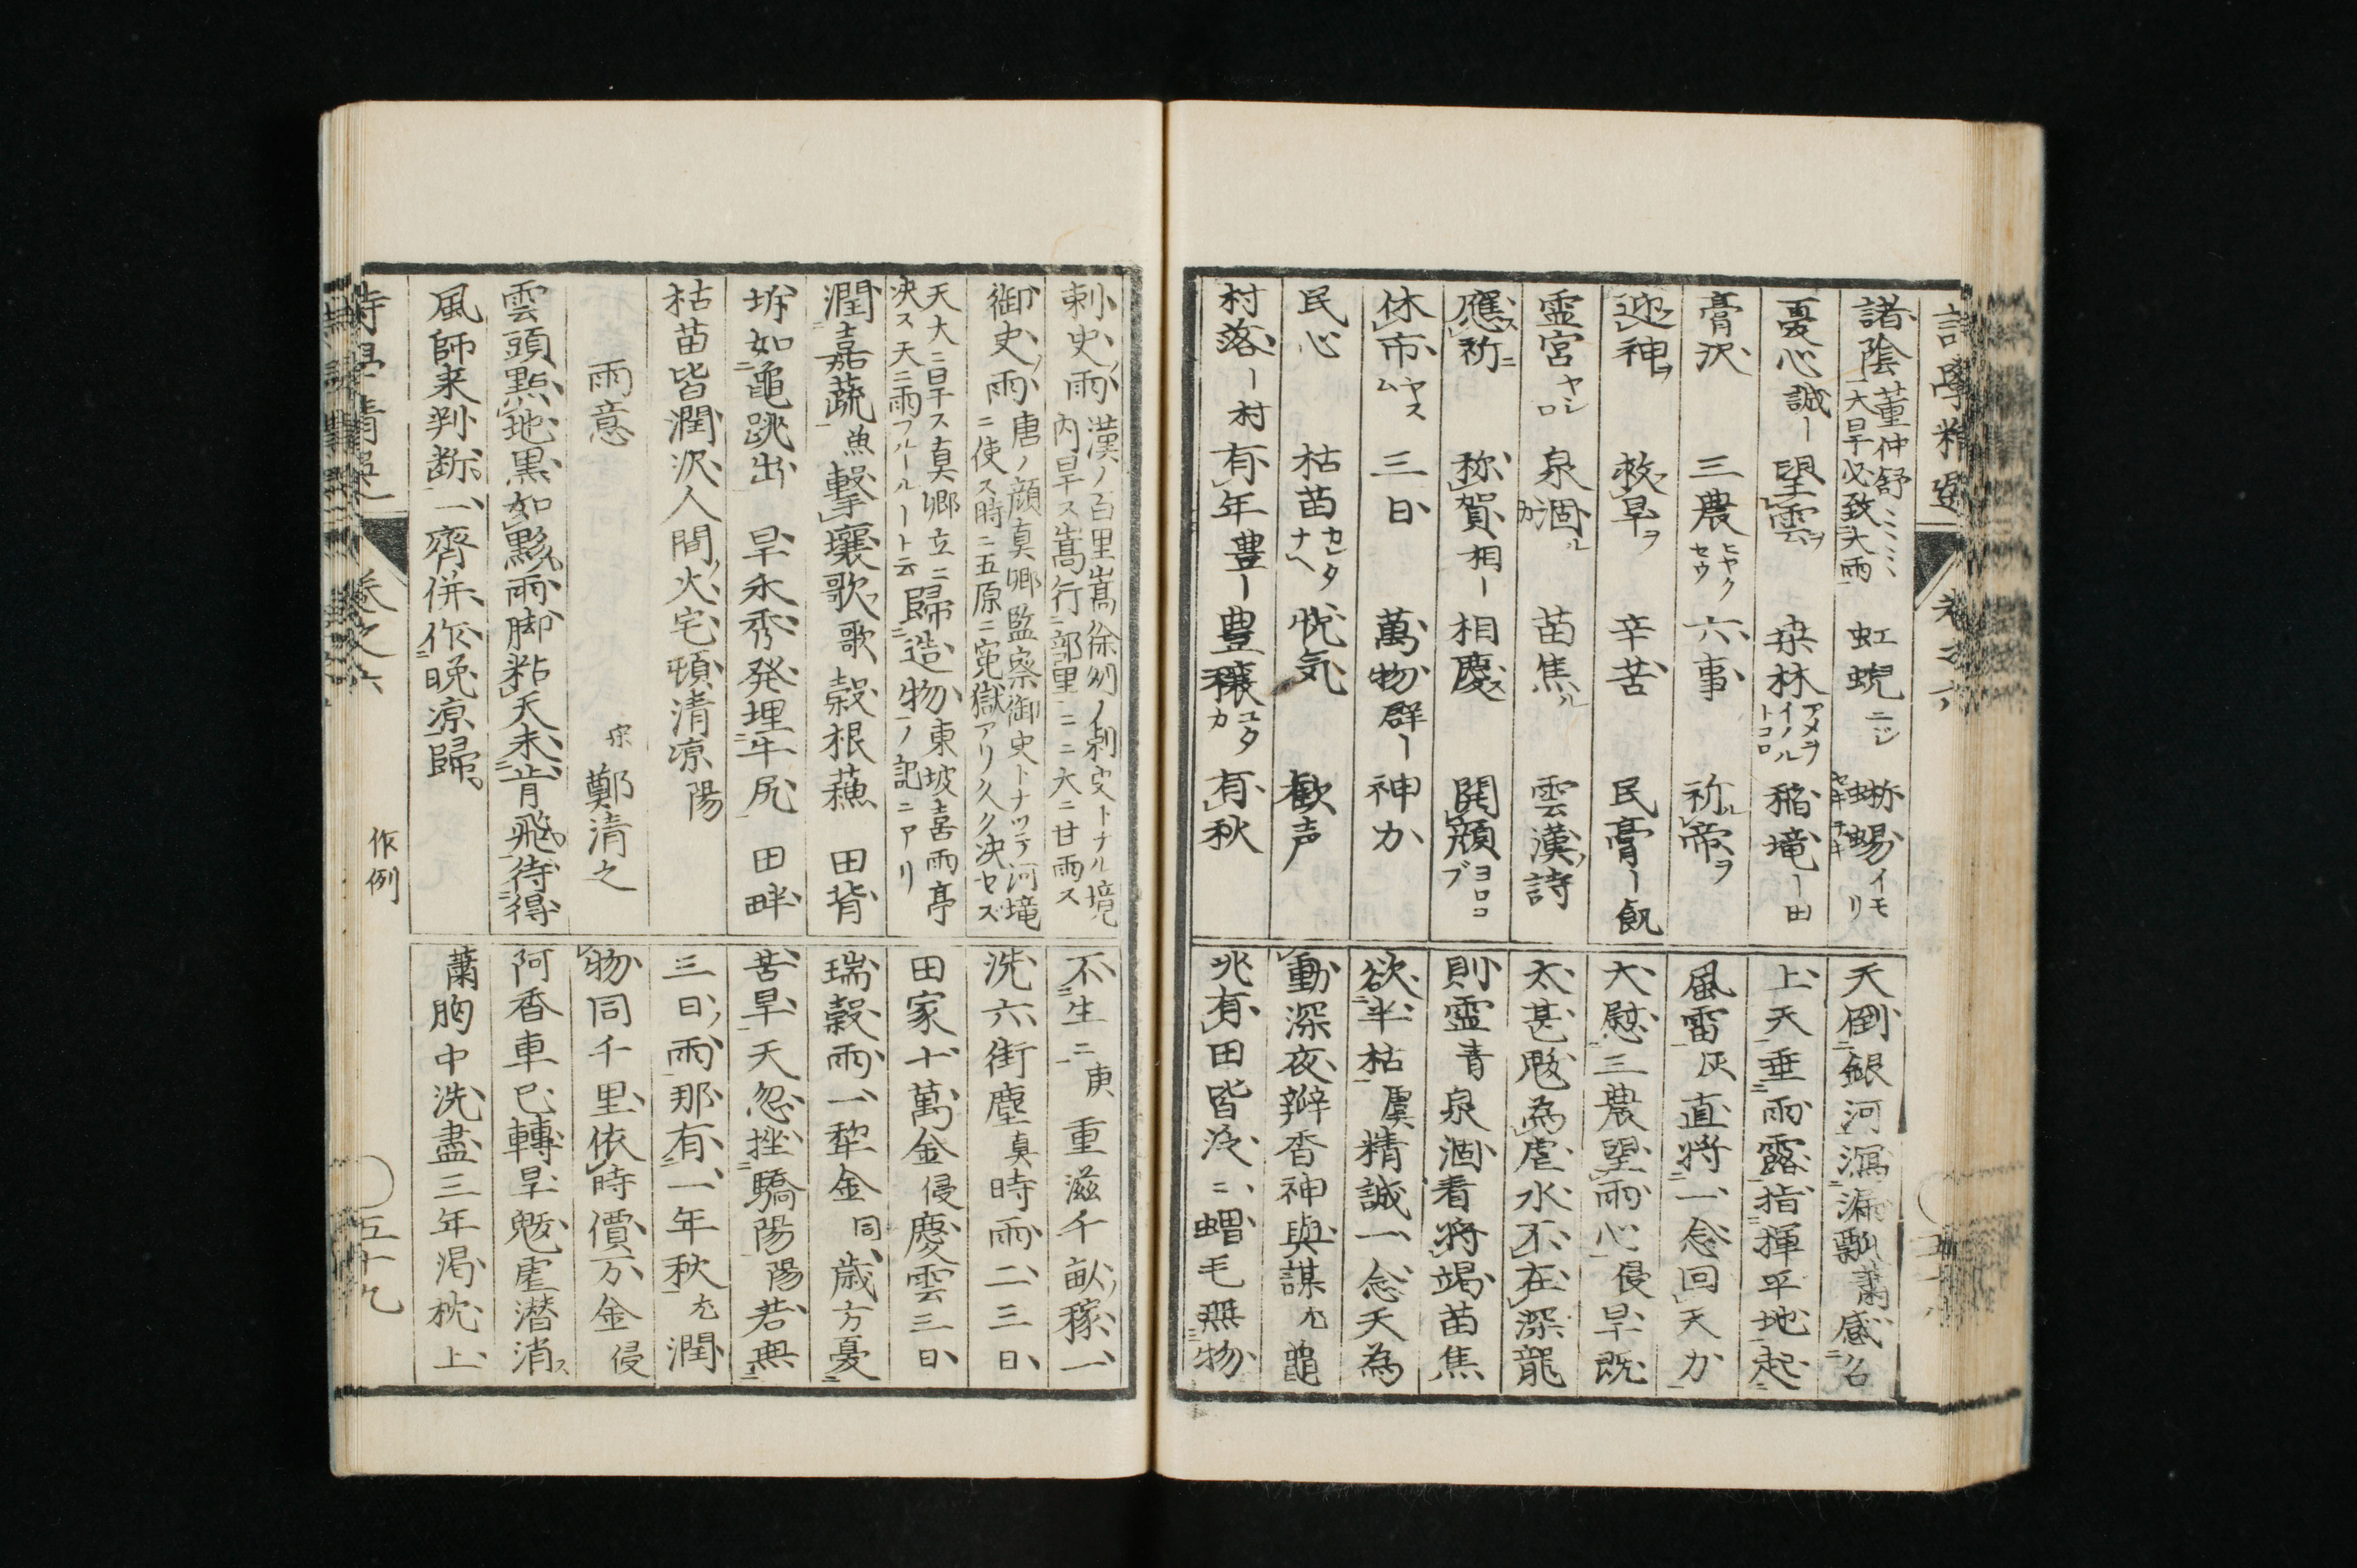 詩學精選 卷之六
諸陰 董仲舒ミミミ大旱必致大雨 虹蜺ニジ 蜥蜴イモリ
憂心 誠ー 望雲ヲ 桒林アメヲイノルトコロ 稲㙓ー田
膏沢 三農ヒヤクセウ 六事 祈ル帝ヲ
迎神ヲ 救旱ヲ 辛苦 民膏ー飢
霊宮ヤシロ 泉涸カル 苗焦ル 雲漢ノ詩
應ス祈ニ 称賀 相ー 相慶ス 開顔ヨロコブ
休市ヤスム 三日 萬物 群ー 神力
民心 枯苗カレタナヘ 悦気 歓声
村落ー村 有年 豊ー 豊穣ユタカ 有秋
天倒銀河瀉漏瓢 蕭 感召
上天垂雨露指揮平地起
風雷 灰 直将一念回天力
大慰三農望雨心 侵 旱既
太甚魃為虐水不在深龍
則霊 青 泉涸看将竭苗焦
欲半枯 虞 精誠一念天為
動深夜瓣香神與謀 尤 龜
兆有田皆泛ニ蝟毛無物
刺史ノ雨 漢ノ百里嵩徐州ノ刺史トナル境内旱ス嵩行部里ニニ大ニ甘雨ス
御史ノ雨 唐ノ顔真卿監察御史トナツテ河㙓ニ使ス時ニ五原ニ寃獄アリ久ク決セズ
天大ニ旱ス真卿立ニ決ス天ニ雨フルールート云 歸造物 東坡喜雨亭ノ記ニアリ
潤嘉蔬 魚 撃壤歌 歌 穀根蘓 田背
坼如亀跳出 旱禾秀発埋牛尻 田畔
枯苗皆潤沢人間ノ火宅頓清凉 陽
雨意 宋 鄭清之
雲頭點地黒如黟雨脚粘天未肯飛待得
風師来判断一齊併作晩凉歸
不生ニ 庚 重滋千畝ノ稼一
洗六街塵 真 時雨二三日
田家十萬金 侵 慶雲三日
瑞穀雨一犂金 同 歳方憂
苦旱天忽挫驕陽 陽 若無
三日ノ雨那有一年秋 尤 潤
物同千里依時價万金 侵
阿香車已轉旱魃虐潜消ス
蕭 胸中洗盡三年渇枕上
作例
卷之六
五十九